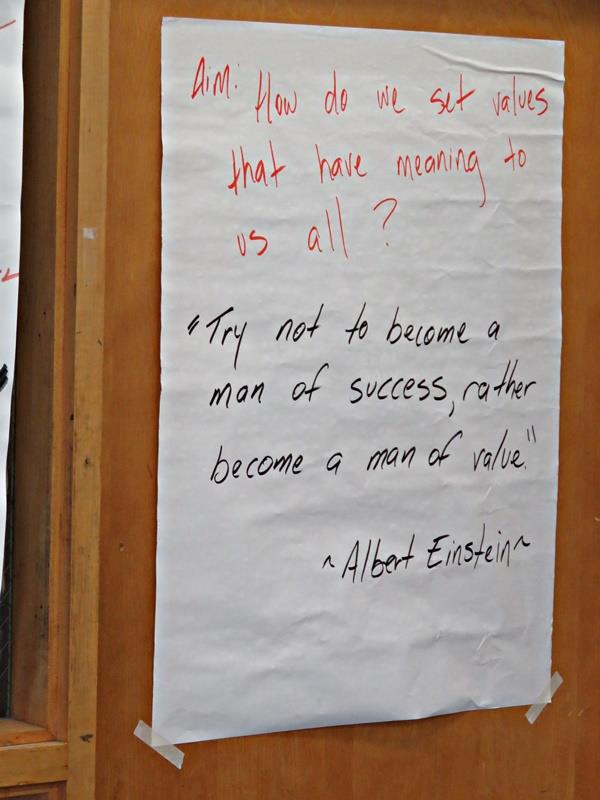 Aim: How do we set values
that have meaning to
us all?
"Try not to become a
man of success, rather
become a man of value."
~Albert Einstein~